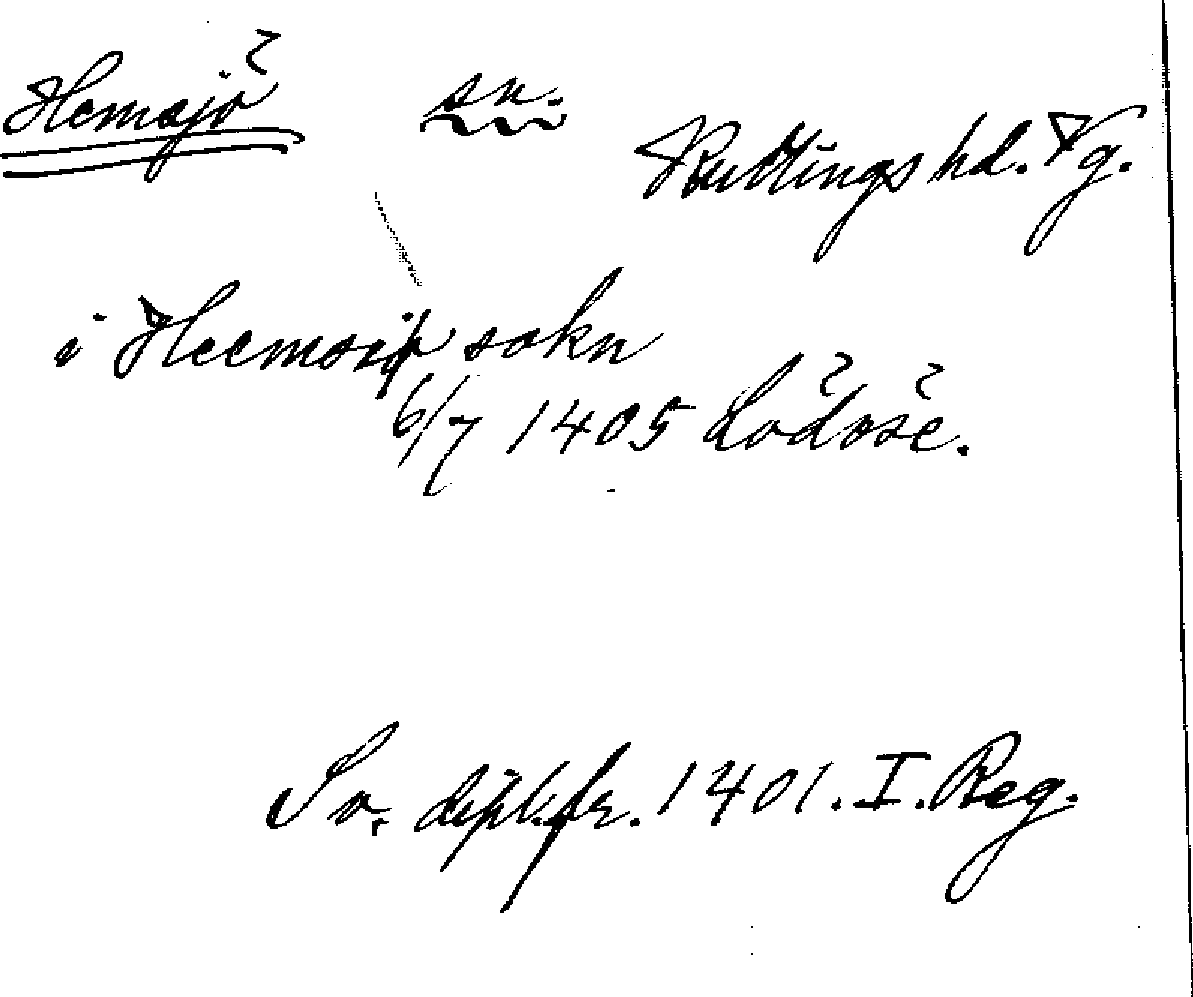 Hemsjö sn. Kullings hd. Vg.
i Heemsiø sokn
6/7 1405 Lödöse.
Sv. dipl. fr. 1401. I. Reg.